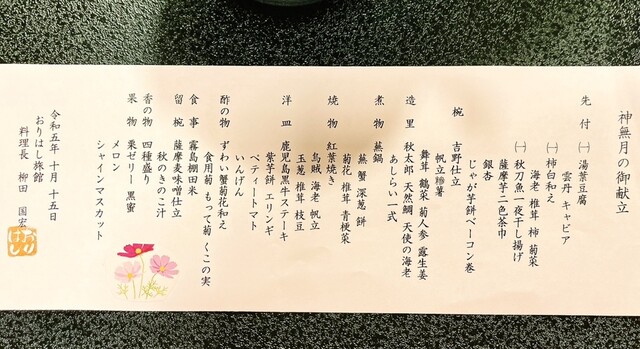 神無月の御献立
先付 ㈠ 湯葉豆腐
雲丹 キャビア
㈠ 柿白和え
海老 椎茸 柿 菊菜
㈠ 秋刀魚一夜干し揚げ
薩摩芋二色茶巾
銀杏
じゃが芋餅ベーコン巻
椀 吉野仕立
帆立糝薯
舞茸 鶴菜 菊人参 露生姜
造里 秋太郎 天然鯛 天使の海老
あしらい一式
煮物 蕪鍋
蕪 蟹 深葱 餅
菊花 椎茸 青梗菜
焼物 紅葉焼き
烏賊 海老 帆立
玉葱 椎茸 枝豆
洋皿 鹿児島黒牛ステーキ
紫芋餅 エリンギ
ペティートマト
いんげん
酢の物 ずわい蟹菊花和え
食用菊 もって菊 くこの実
食事 霧島棚田米
留椀 薩摩麦味噌仕立
秋のきのこ汁
香の物 四種盛り
果物 栗ゼリー 黒蜜
メロン
シャインマスカット
令和五年 十月 十五日
おりはし旅館
料理長 柳田 国宏
おりはし